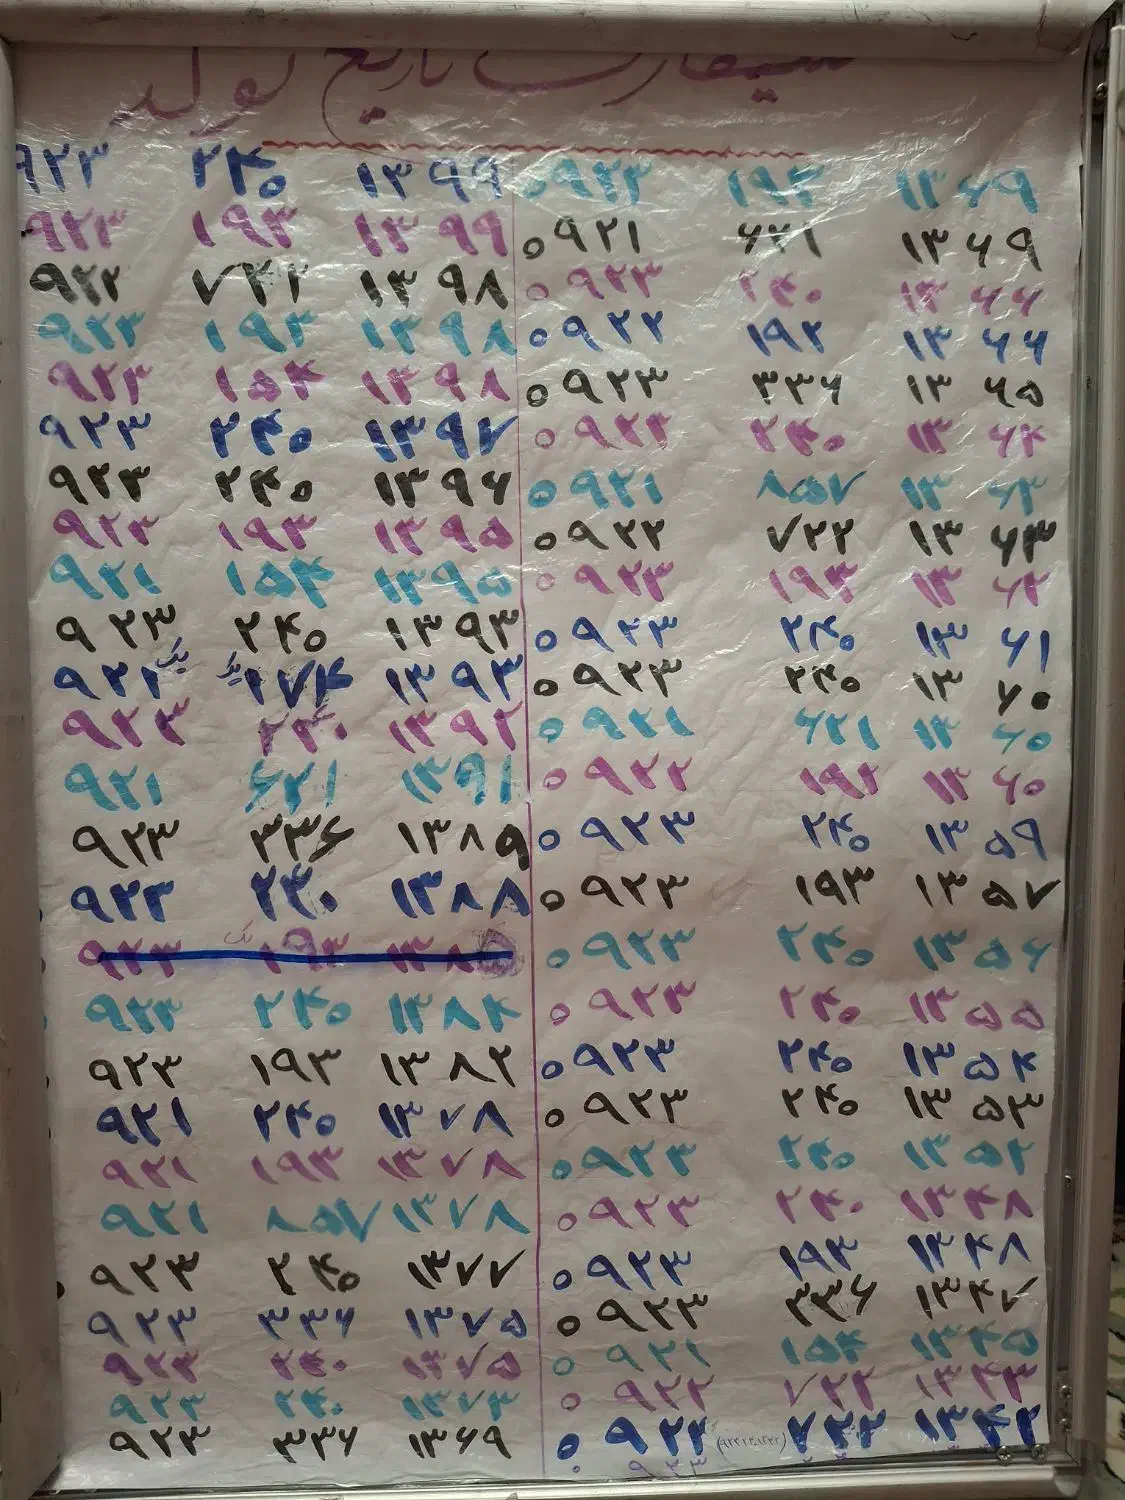 سیمکارت تاریخ تولد
۹۲۳ ۲۴۰ ۱۳۹۹
۹۲۳ ۱۹۳ ۱۳۹۹
۹۲۲ ۷۲۲ ۱۳۹۸
۹۲۳ ۱۹۳ ۱۳۹۸
۹۲۳ ۱۵۴ ۱۳۹۸
۹۲۳ ۲۴۰ ۱۳۹۷
۹۲۳ ۲۴۰ ۱۳۹۶
۹۲۳ ۱۹۳ ۱۳۹۵
۹۲۱ ۱۵۴ ۱۳۹۵
۹۲۳ ۲۴۰ ۱۳۹۳
۹۲۲ ۱۳۹۳
۹۲۳ ۲۴۰ ۱۳۹۲
۹۲۱ ۶۲۱ ۱۳۹۱
۹۲۳ ۳۳۶ ۱۳۸۹
۹۲۳ ۲۴۰ ۱۳۸۸
۹۲۳ ۱۹۳
۹۲۳ ۲۴۰ ۱۳۸۴
۹۲۳ ۱۹۳ ۱۳۸۲
۹۲۱ ۲۴۰ ۱۳۷۸
۹۲۱ ۱۹۳ ۱۳۷۸
۹۲۱ ۸۵۷ ۱۳۷۸
۹۲۳ ۲۴۰ ۱۳۷۷
۹۲۳ ۳۳۶ ۱۳۷۵
۹۲۳ ۲۴۰ ۱۳۷۵
۹۲۳ ۲۴۰ ۱۳۷۳
۹۲۳ ۳۳۶ ۱۳۶۹
۰۹۲۳ ۱۹۳ ۱۳۶۹
۰۹۲۱ ۶۲۱ ۱۳۶۹
۰۹۲۳ ۲۴۰ ۱۳۶۶
۰۹۲۲ ۱۹۲ ۱۳۶۶
۰۹۲۳ ۳۳۶ ۱۳۶۵
۰۹۲۳ ۲۴۰ ۱۳۶۴
۰۹۲۱ ۸۵۷ ۱۳۶۳
۰۹۲۲ ۷۲۲ ۱۳۶۳
۰۹۲۳ ۱۹۳ ۱۳۶۲
۰۹۲۳ ۲۴۰ ۱۳۶۱
۰۹۲۳ ۲۴۰ ۱۳۶۰
۰۹۲۱ ۶۲۱ ۱۳۶۰
۰۹۲۲ ۱۹۲ ۱۳۶۰
۰۹۲۳ ۲۴۰ ۱۳۵۹
۰۹۲۳ ۱۹۳ ۱۳۵۷
۰۹۲۳ ۲۴۰ ۱۳۵۶
۰۹۲۳ ۲۴۰ ۱۳۵۵
۰۹۲۳ ۲۴۰ ۱۳۵۴
۰۹۲۳ ۲۴۰ ۱۳۵۳
۰۹۲۳ ۲۴۰ ۱۳۵۲
۰۹۲۳ ۲۴۰ ۱۳۴۸
۰۹۲۳ ۱۹۳ ۱۳۴۸
۰۹۲۳ ۳۳۶ ۱۳۴۷
۰۹۲۱ ۱۵۴ ۱۳۴۵
۰۹۲۲ ۷۲۲ ۱۳۴۳
۰۹۲۲ ۷۲۲ ۱۳۴۲